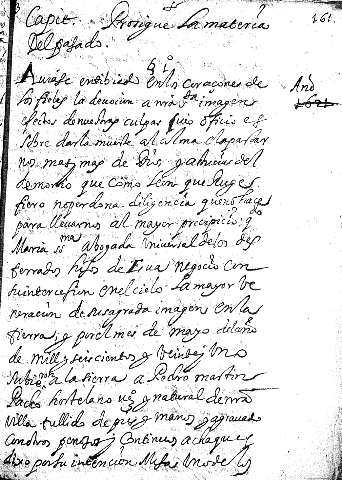 Capit. Prosigue La materia
161.
del pasado.
§ 1
Auiase entibiado en los coraçones de
Año
1621
los fieles la deuocion a nrã Sta imagen
efectos de nuestras culpas cuio officio es
sobre darla muerte al alma elapartar
nos mas y mas de Dios, y alucies del
demonio que como Leon que Ruge
fiero noperdona diligencia que no haga
para lleuarnos al mayor precipicio: qdo
Maria ssma Abogada Uniuersal delos des
terrados hijos de Eua negocio con
su intercesion en el cielo la mayor ve
neracion de su sagrada imagen en la
tierra, y por el mes de mayo del año
de mill y seiscientos y veinte y Uno
Subió a la sierra a Pedro martin
Pacho hortelano vº y natural de nrã
villa tullido de pies y manos y agrauado
con otros penosos y Continuos achaques
dixo por su intencion Missa Uno de los